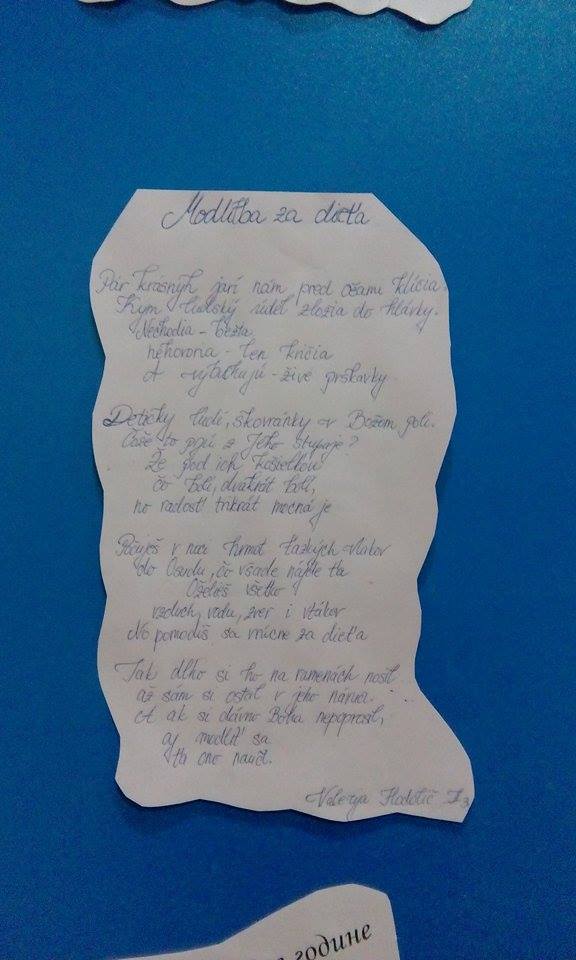 Modlitba za dieťa
Pár krásnyh jarí nám pred očami klíčia.
Kým ľudský údel zložia do hlávky.
Nechodia - bežia
nehovoria - len kričia
A vybuchujú - živé prskavky
Detičky ľudí, škovránky v Božom poli.
Čaše to pijú z Jeho stupaje?
Že pod ich košieľkou
čo bolí, dvakrát bolí,
no radosť trikrát mocná je
Počuješ v noci hrmot ťažkých vlakov
do Osudu, čo všade nájde ťa
Oželieš všetko
vzduch, vodu, zver i vtákov
No pomodlíš sa vrúcne za dieťa
Tak dlho si ho na ramenách nosil
až sám si ostal v jeho náruči.
A ak si dávno Boha nepoprosil,
aj modliť sa
ťa ono naučí.
Valerija Hadotič I3
године